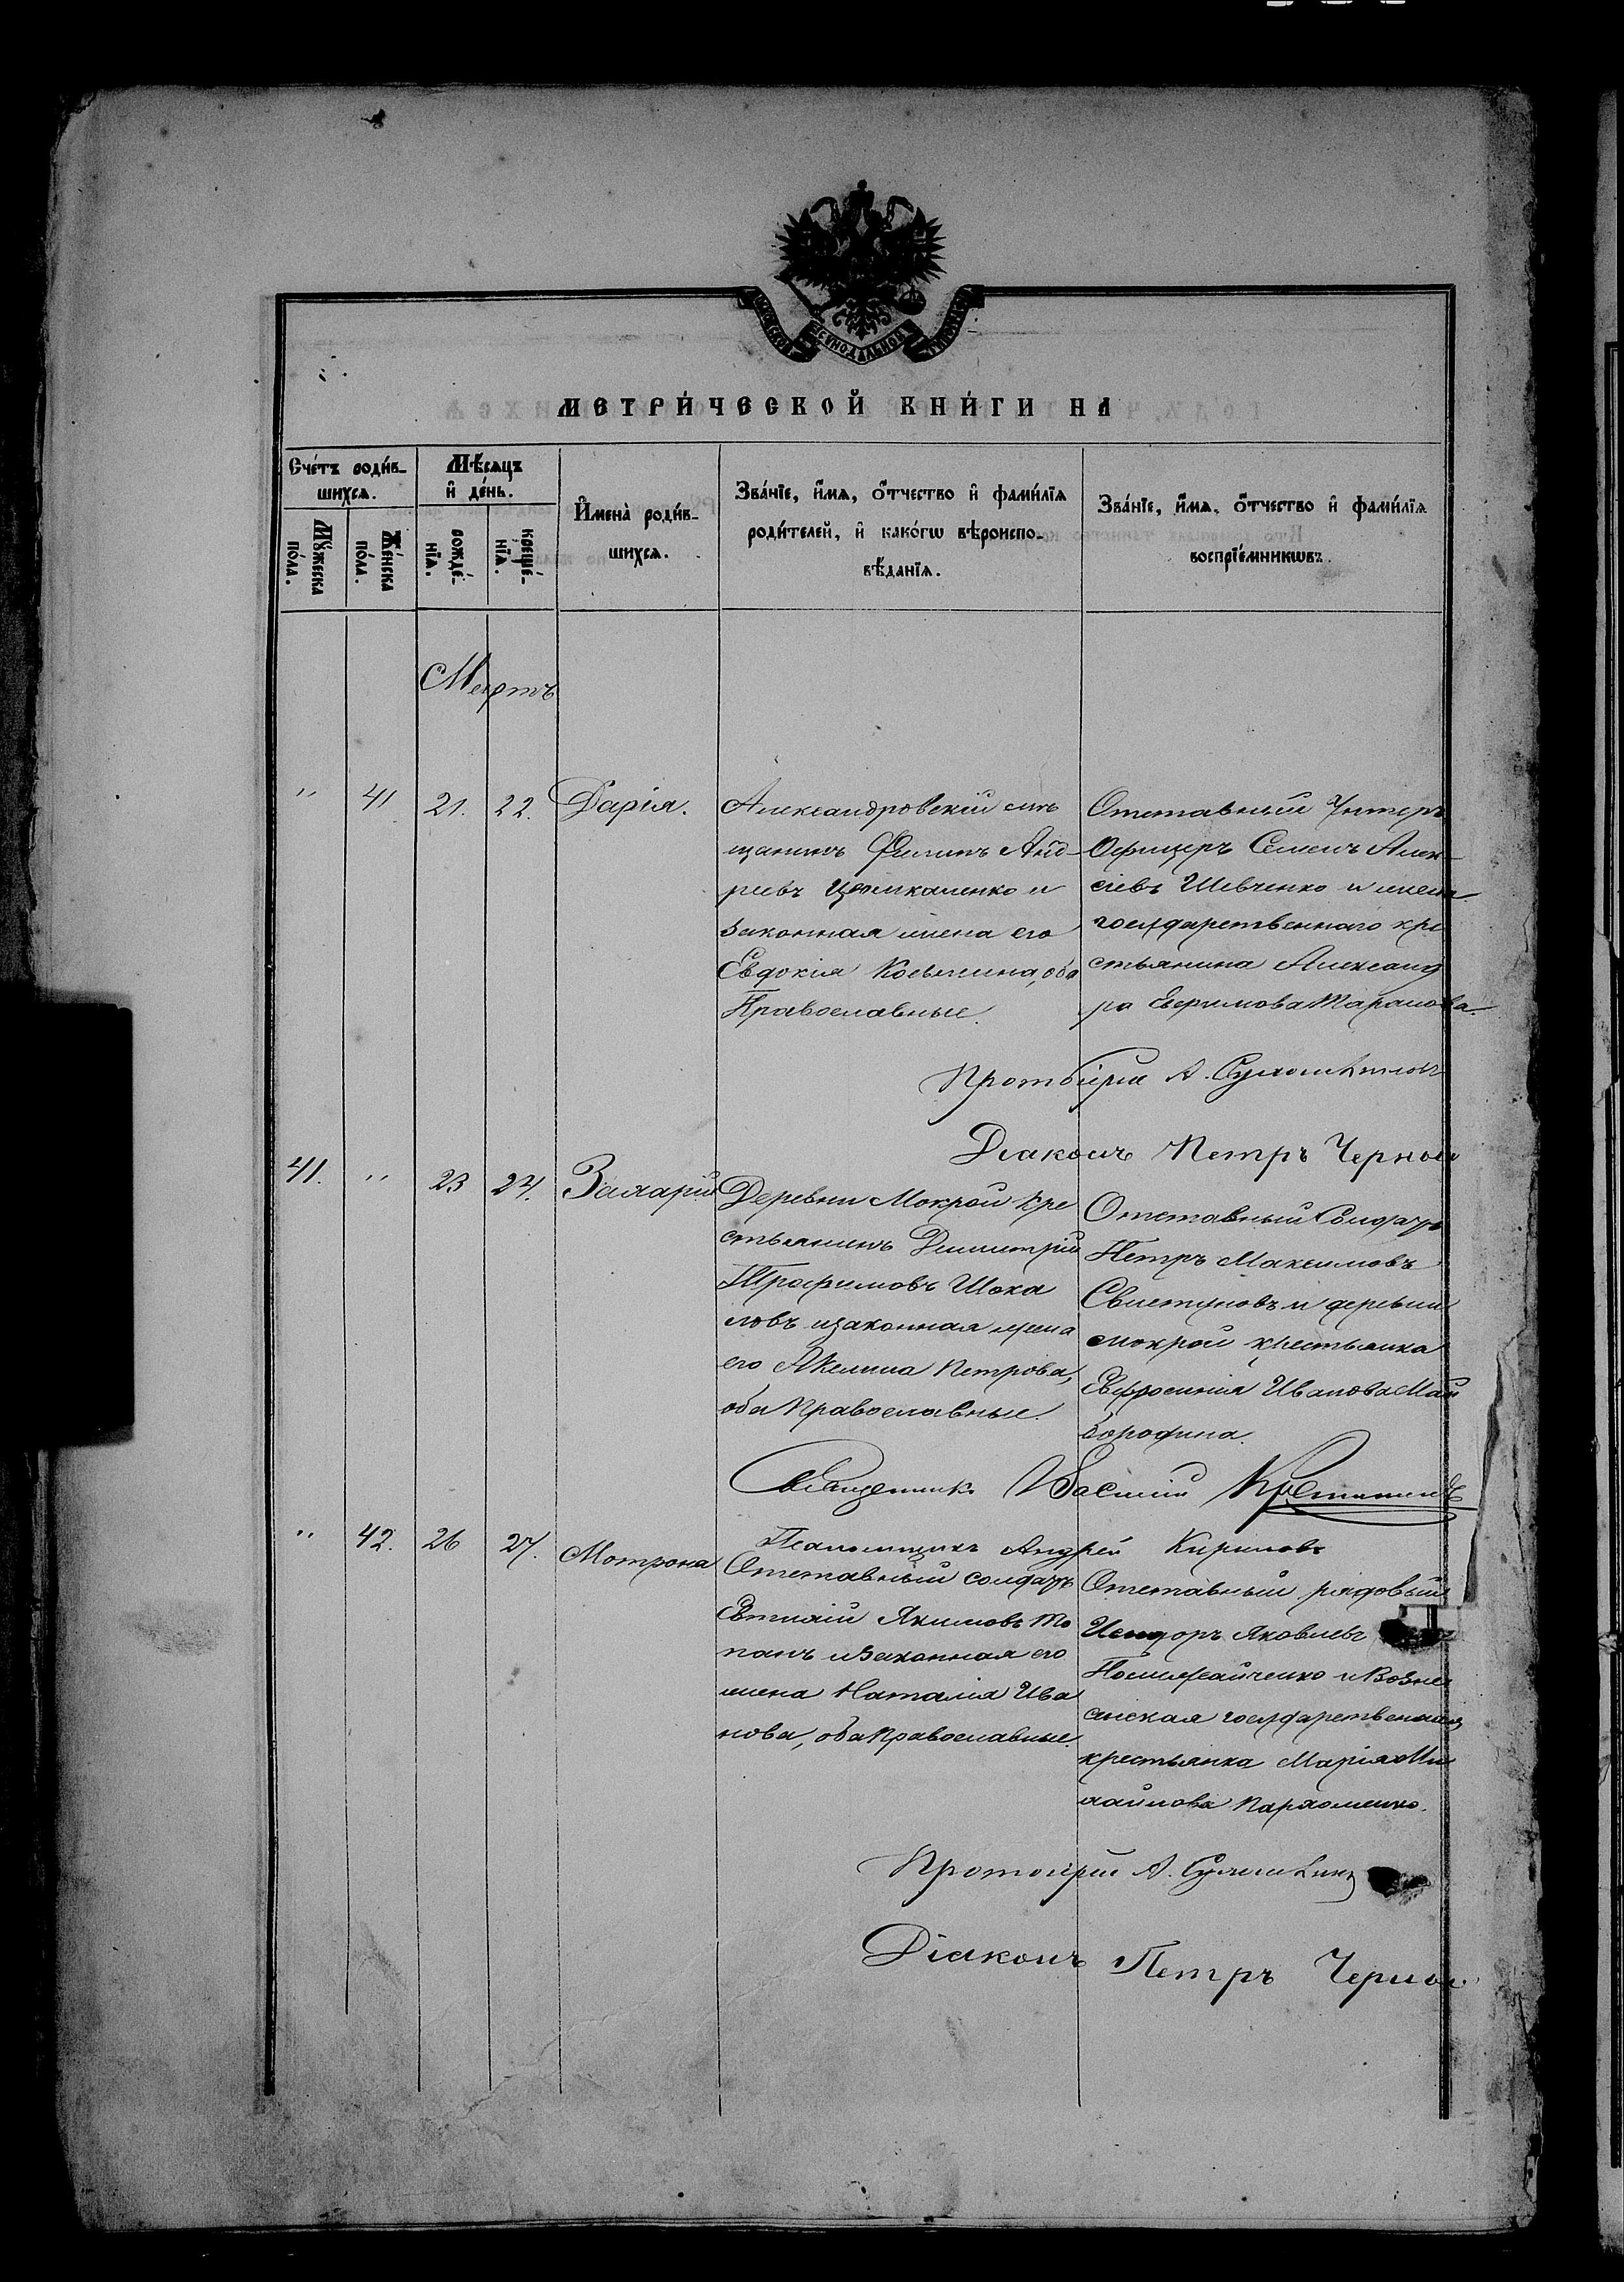 МОСКОВСКОЙ СѴНОДАЛЬНОЙ ТИПОГРАФІИ
МЕТРИ́ЧЕСКОЙ КНИ́ГИ НА
Сче́тъ роди́в-
шихся.
Мꙋ́жеска
по́ла.
Же́нска
по́ла.
Мѣ́сяцъ
и҆ де́нь.
рожде́-
нїѧ.
креще́-
нїѧ.
И҆мена̀ роди́в-
шихсѧ.
Зва́нїе, и҆́мѧ, ѻ҆́тчество и҆ фами́лїѧ
роди́телей, и҆ како́гѡ вѣроиспо-
вѣ́данїѧ.
Зва́нїе, и҆́мѧ, ѻ҆́тчество и҆ фами́лїѧ
воспрїе́мникѡвъ.
Мартъ
" 41 21. 22. Дарія.
Александровскій мѣ
щанинъ Филипъ Анд-
реевъ Цимкаленко и
законная жена его
Евдокія Косьмина, оба
Православные.
Отставный Унтеръ
Офицеръ Семенъ Алек-
сѣевъ Шевченко и жена
государственнаго кре
стьянина Александ
ра Ефимова Таранова.
Протоіерей А.
Діаконъ Петръ Черной
41. " 23 24. Захарій
Деревни Мокрой кре
стьянинъ Димитрій
Трофимовъ Шока
ловъ и законная жена
его Акелина Петрова,
оба Православные.
Отставный Солдатъ
Петръ Максимовъ
Свистуновъ и деревни
мокрой крестьянка
Евфросинія Иванова Май
бородина.
Священникъ Василій
Псаломщикъ Андрей Кириловъ
" 42. 26 27. Мотрона
Отставный солдатъ
Евтихій Якимовъ То
панъ и законная его
жена Наталія Ива
нова, оба Православные.
Отставный рядовый
Исидоръ Яковлевъ
и Возне
сенская государственная
крестьянка Марія Ми
хайлова Пархоменко.
Протоіерей А.
Діаконъ Петръ Черной